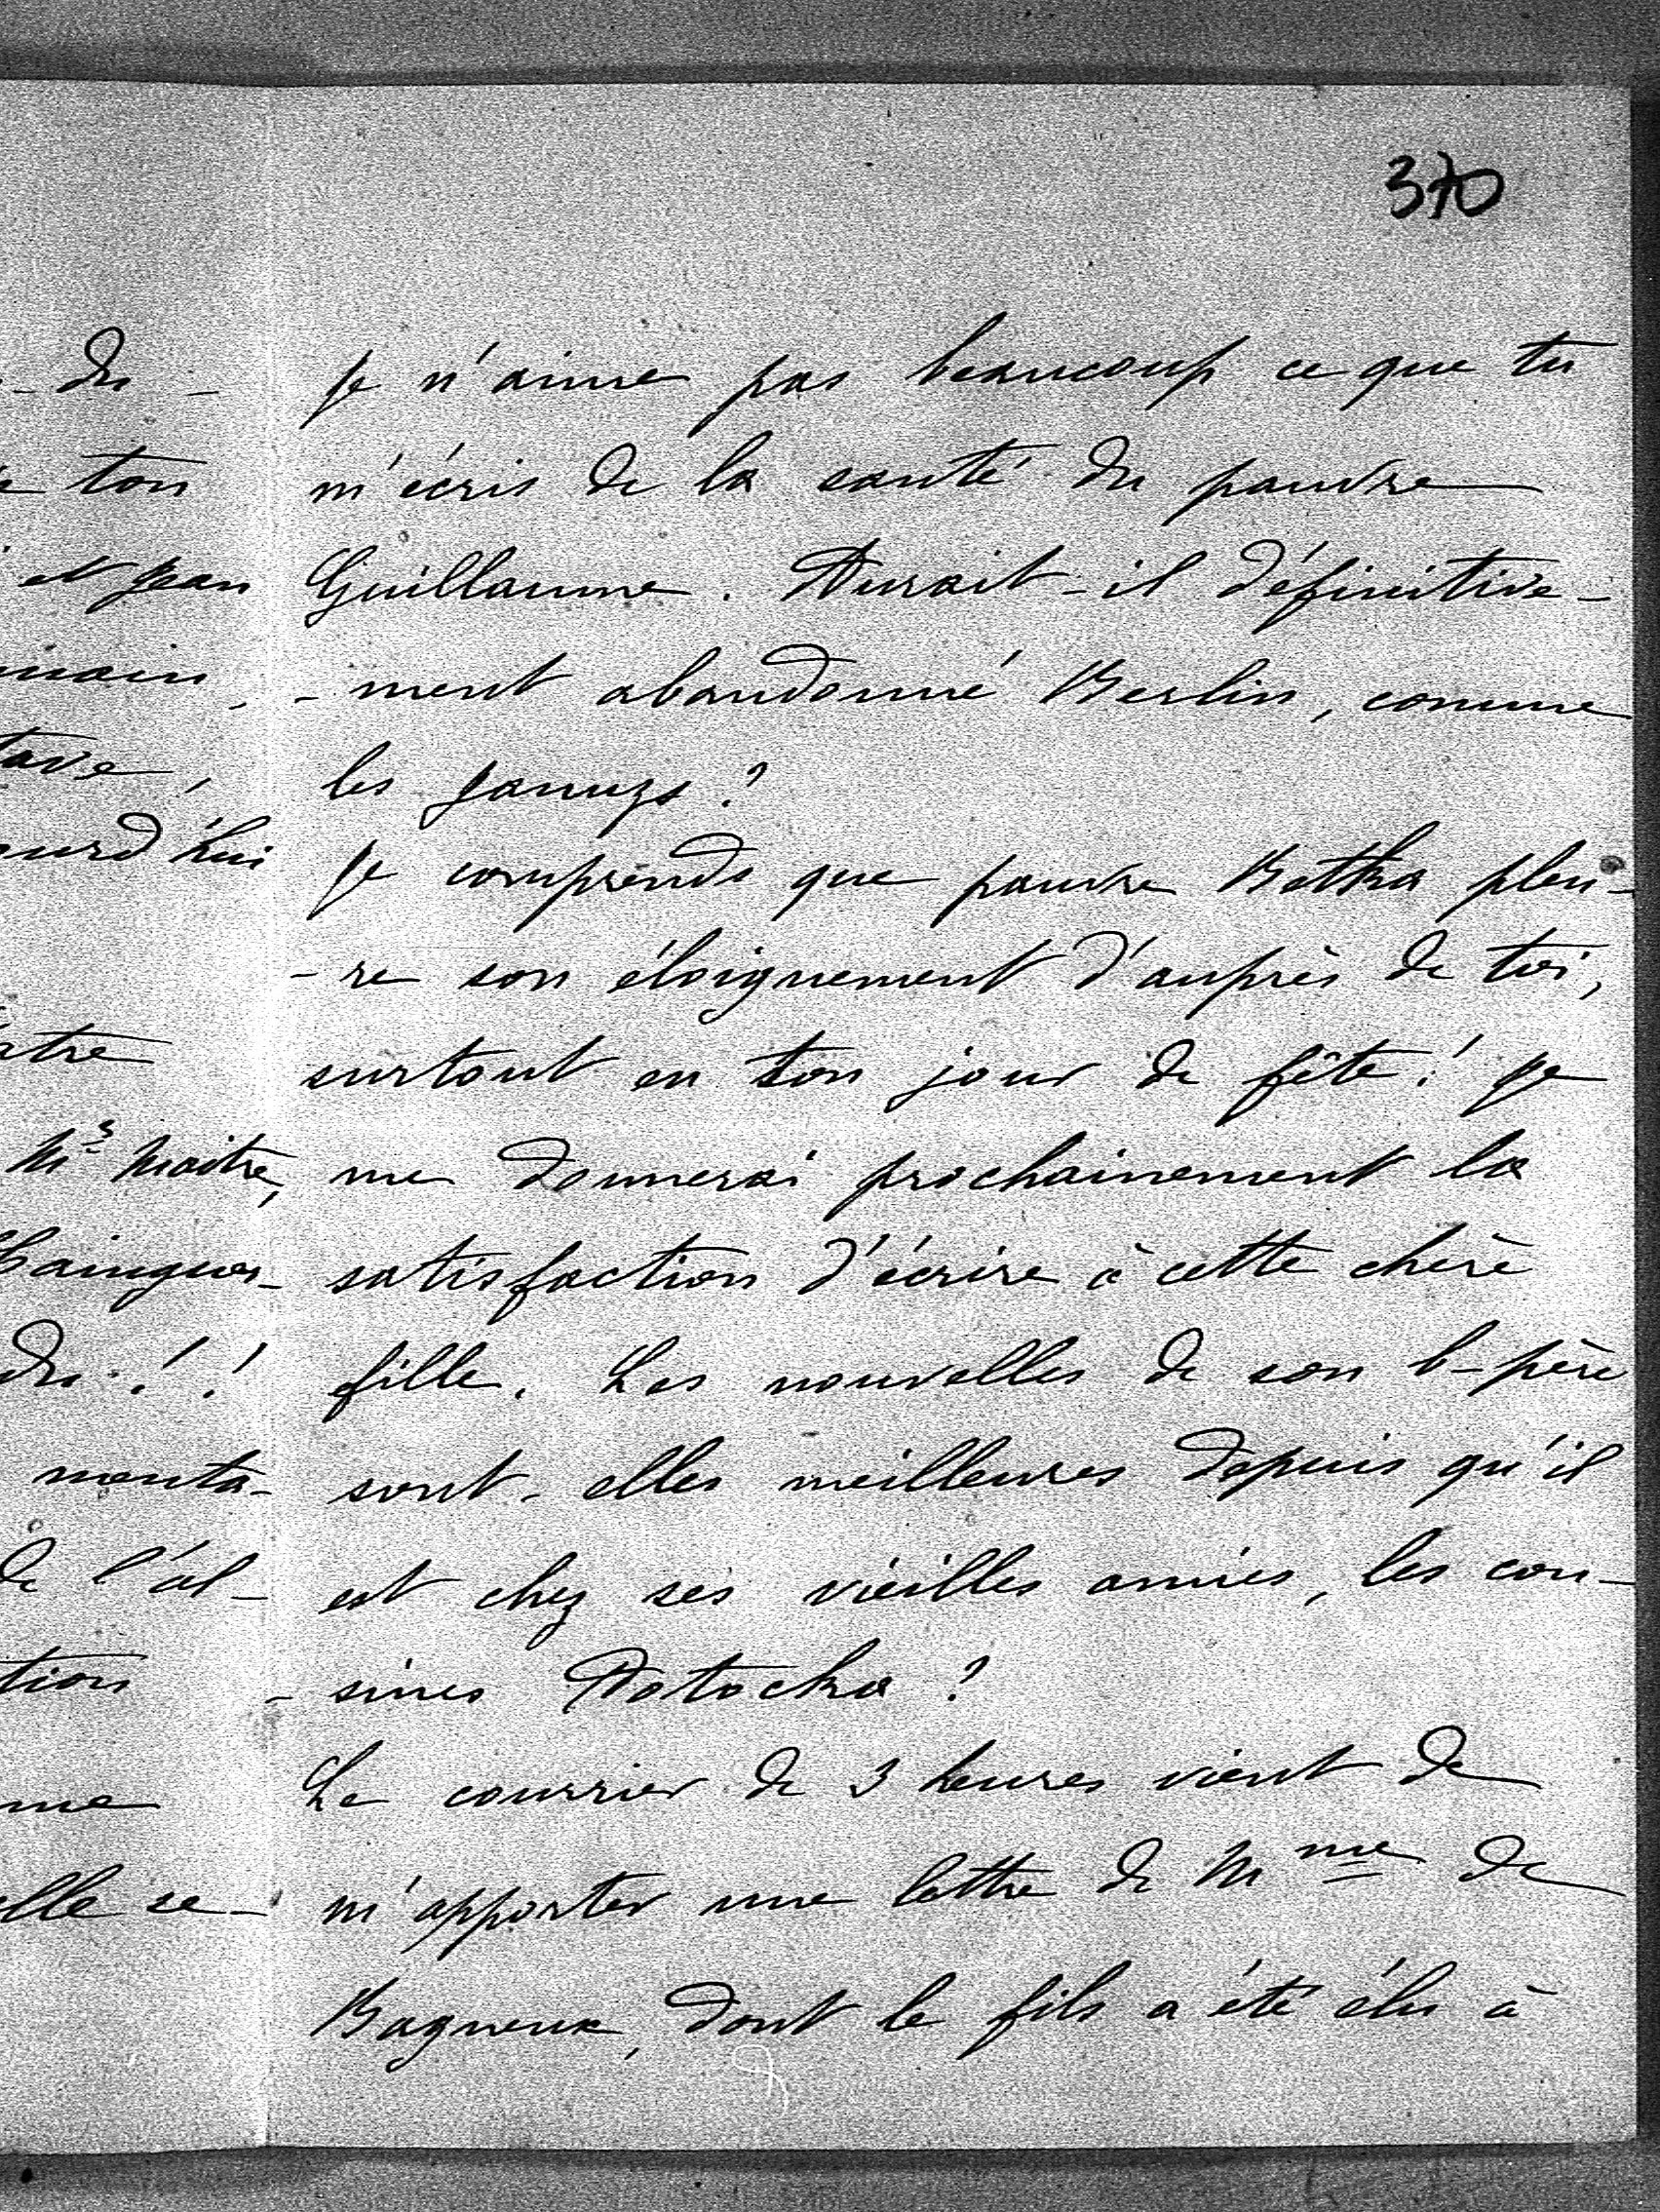 370
- du -
ton
et Jean
main -
tave,
ourd'hui
atre
Mr Maitre,
du !!
menta-
de l'al-
tion
me
elle se-
Je n'aime pas beaucoup ce que tu
m'écris de la santé du pauvre
Guillaume. Aurait-il définitive-
-ment abandonné Berlin, comme
les Janusz ?
Je comprends que pauvre Betka pleu-
-re son éloignement d'auprès de toi,
surtout en ton jour de fête ! Je
me donnerai prochainement la
satisfaction d'écrire à cette chère
fille. Les nouvelles de son b-père
sont-elles meilleures depuis qu'il
est chez ses vieilles amies, les cou-
-sines Potocka ?
Le courrier de 3 heures vient de
m'apporter une lettre de Mme de
Bagneux, dont le fils a été élu à